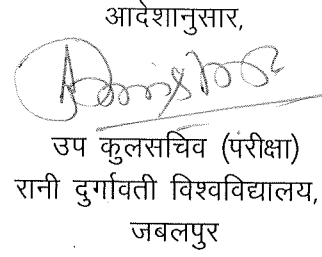 आदेशानुसार,
उप कुलसचिव (परीक्षा)
रानी दुर्गावती विश्वविद्यालय,
जबलपुर